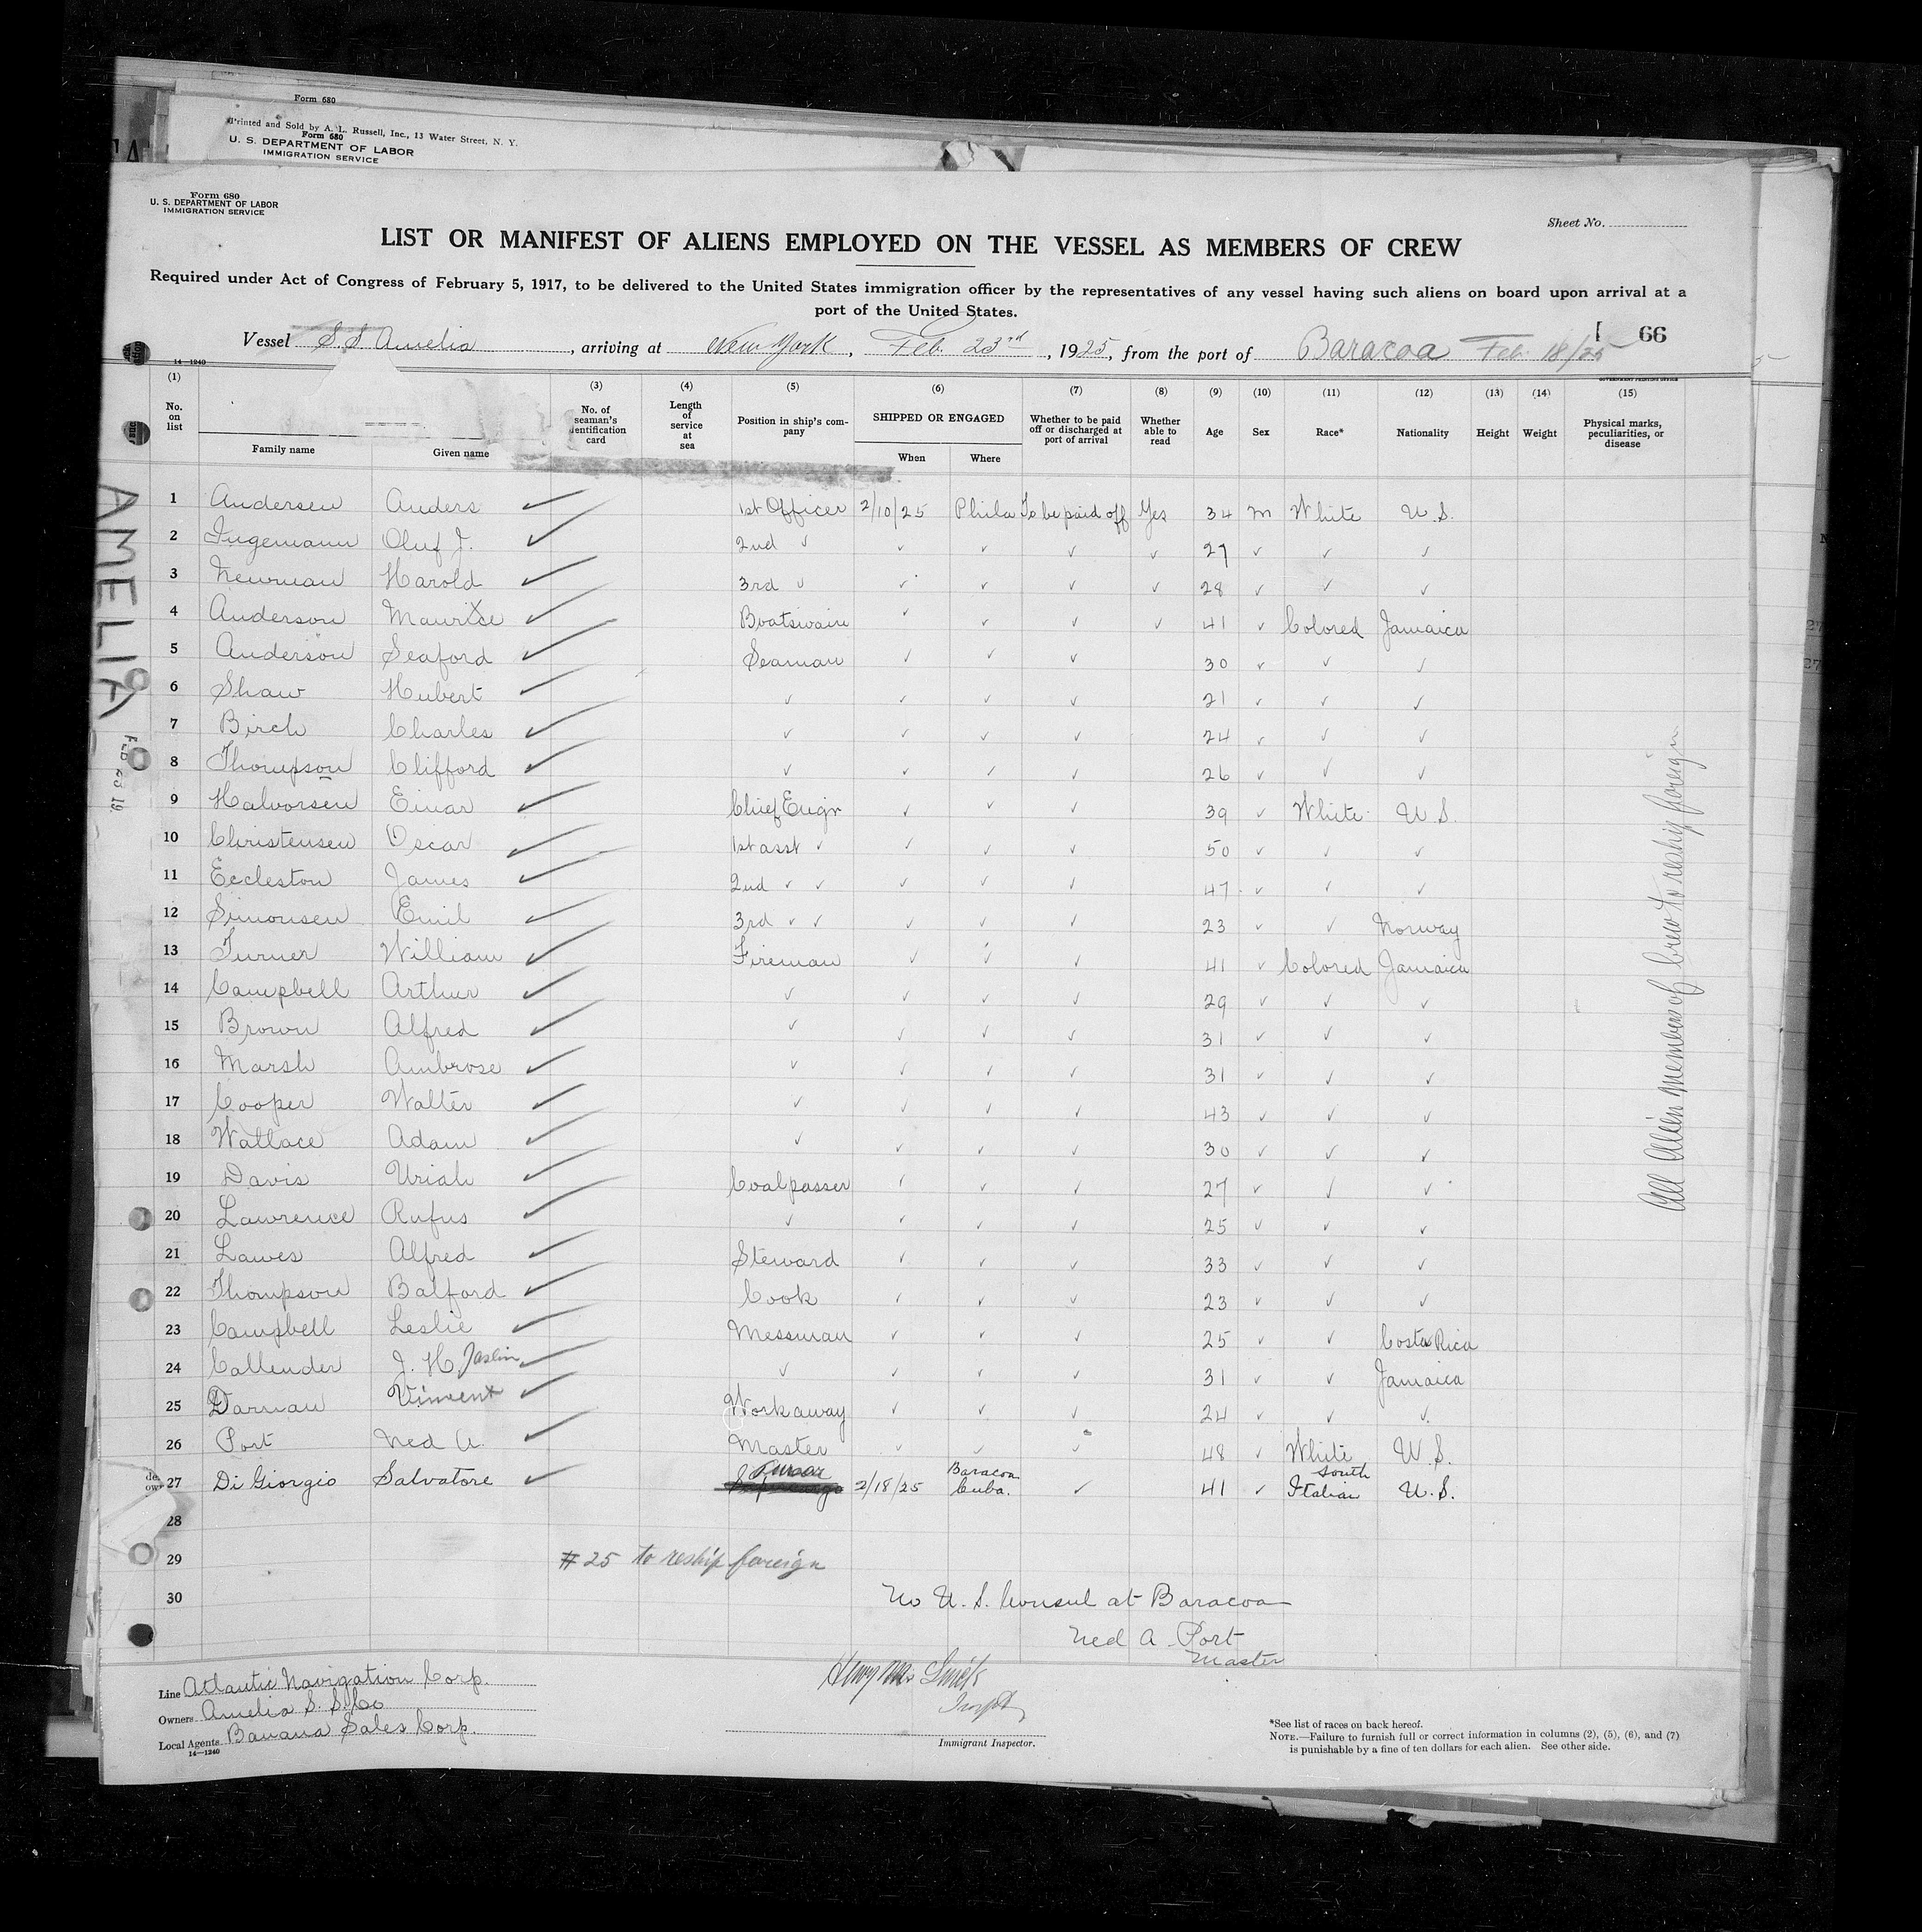 Form 680
Printed and Sold by A. L. Russell, Inc., 13 Water Street, N. Y.
Form 680
U. S. DEPARTMENT OF LABOR
IMMIGRATION SERVICE
Form 680
U. S. DEPARTMENT OF LABOR
IMMIGRATION SERVICE
Sheet No.
LIST OR MANIFEST OF ALIENS EMPLOYED ON THE VESSEL AS MEMBERS OF CREW
Required under Act of Congress of February 5, 1917, to be delivered to the United States immigration officer by the representatives of any vessel having such aliens on board upon arrival at a
port of the United States.
66
Vessel S.S Amelia, arriving at New York, Feb. 23rd, 1925, from the port of Baracoa Feb. 18/25
14—1240
GOVERNMENT PRINTING OFFICE
(1) (3) (4) (5) (6) (7) (8) (9) (10) (11) (12) (13) (14) (15)
No. on list Family name Given name No. of seaman's identification card Length of service at sea Position in ship's company SHIPPED OR ENGAGED When Where Whether to be paid off or discharged at port of arrival Whether able to read Age Sex Race* Nationality Height Weight Physical marks, peculiarities, or disease
1 Andersen Anders ✓ 1st Officer 2/10/25 Phila To be paid off Yes 34 M White U.S.
2 Ingemann Oluf J. ✓ 2nd ✓ ✓ ✓ ✓ ✓ 27 ✓ ✓ ✓
3 Newman Harold ✓ 3rd ✓ ✓ ✓ ✓ ✓ 28 ✓ ✓ ✓
4 Anderson Maurice ✓ Boatswain ✓ ✓ ✓ ✓ 41 ✓ Colored Jamaica
5 Anderson Seaford ✓ Seaman ✓ ✓ ✓ 30 ✓ ✓ ✓
6 Shaw Hubert ✓ ✓ ✓ ✓ ✓ 21 ✓ ✓ ✓
7 Birch Charles ✓ ✓ ✓ ✓ ✓ 24 ✓ ✓ ✓
8 Thompson Clifford ✓ ✓ ✓ ✓ ✓ 26 ✓ ✓ ✓
9 Halvorsen Einar ✓ Chief Engr ✓ ✓ ✓ 39 ✓ White U.S.
10 Christensen Oscar ✓ 1st asst ✓ ✓ ✓ ✓ 50 ✓ ✓ ✓
11 Eccleston James ✓ 2nd ✓ ✓ ✓ ✓ ✓ 47 ✓ ✓ ✓
12 Simonsen Emil ✓ 3rd ✓ ✓ ✓ ✓ ✓ 23 ✓ ✓ Norway
13 Turner William ✓ Fireman ✓ ✓ ✓ 41 ✓ Colored Jamaica
14 Campbell Arthur ✓ ✓ ✓ ✓ ✓ 29 ✓ ✓ ✓
15 Brown Alfred ✓ ✓ ✓ ✓ ✓ 31 ✓ ✓ ✓
16 Marsh Ambrose ✓ ✓ ✓ ✓ ✓ 31 ✓ ✓ ✓
17 Cooper Walter ✓ ✓ ✓ ✓ ✓ 43 ✓ ✓ ✓
18 Wallace Adam ✓ ✓ ✓ ✓ ✓ 30 ✓ ✓ ✓
19 Davis Uriah ✓ Coalpasser ✓ ✓ ✓ 27 ✓ ✓ ✓
20 Lawrence Rufus ✓ ✓ ✓ ✓ ✓ 25 ✓ ✓ ✓
21 Lawes Alfred ✓ Steward ✓ ✓ ✓ 33 ✓ ✓ ✓
22 Thompson Balford ✓ Cook ✓ ✓ ✓ 23 ✓ ✓ ✓
23 Campbell Leslie ✓ Messman ✓ ✓ ✓ 25 ✓ ✓ Costa Rica
24 Callender J. H. Joslin ✓ ✓ ✓ ✓ ✓ 31 ✓ ✓ Jamaica
25 Darnau Vincent ✓ Workaway ✓ ✓ ✓ 24 ✓ ✓ ✓
26 Port Ned A. ✓ Master ✓ ✓ ✓ 48 ✓ White U.S.
27 Di Giorgio Salvatore ✓ Purser 2/18/25 Baracoa Cuba. ✓ 41 ✓ South Italian U.S.
28
29 # 25 to reship foreign
30
No U. S. Consul at Baracoa
Ned A Port
Master
All Alien Members of Crew to reship foreign
AMELIA
FEB 23 19
Line Atlantic Navigation Corp.
Owners Amelia S. S. Co
Local Agents Banana Sales Corp.
14—1240
Immigrant Inspector.
*See list of races on back hereof.
NOTE.—Failure to furnish full or correct information in columns (2), (5), (6), and (7)
is punishable by a fine of ten dollars for each alien. See other side.